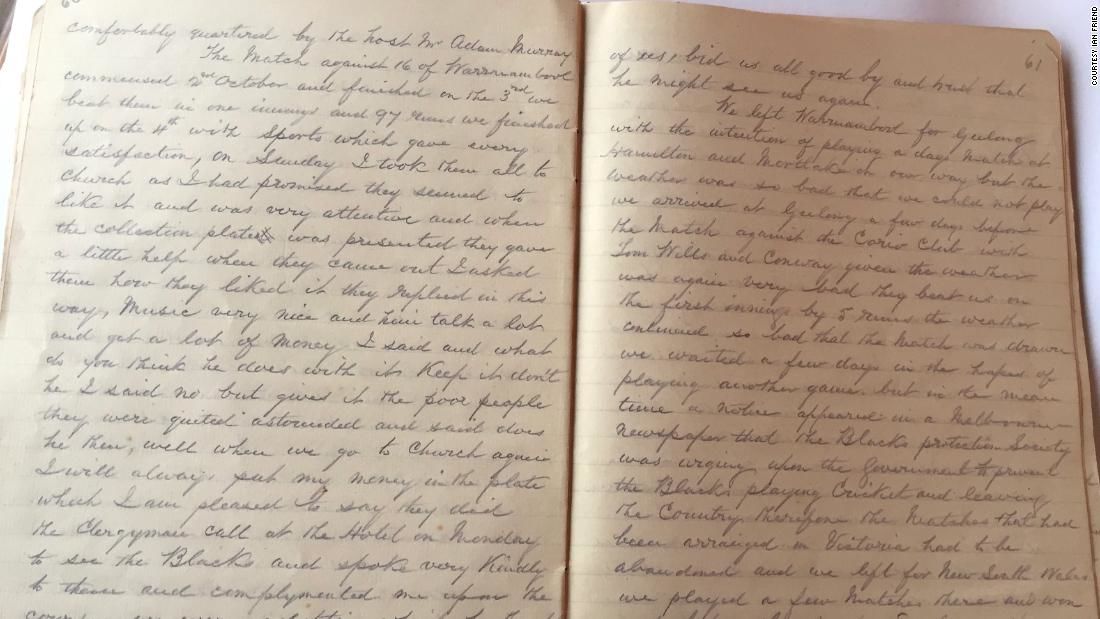 60
comfortably quartired by the host Mr Adam Murray
The Match against 16 of Warrnambool
commensed 2nd October and finished on the 3rd we
beat them in one innings and 97 runs we finished
up on the 4th with Sports which gave every
satisfaction, on Sunday I took them all to
Church as I had promised they seemed to
like it and was very attentive and when
the collection plate was presented they gave
a little help when they came out I asked
them how they liked it they replied in this
way, Music very nice and him talk a lot
and get a lot of money I said and what
do you think he does with it Keep it don't
he I said no but gives it the poor people
they were quited astounded and said does
he then, well when we go to Church again
I will always put my money in the plate
which I am pleased to say they did
the Clergyman call at the Hotel on Monday
to see the Blacks and spoke very Kindly
to them and complymented me upon the
61
of us, bid us all good by and trust that
he might see us again.
We left Warrnambool for Geelong
with the intention of playing a days Match at
Hamilton and Mortlake on our way but the
weather was so bad that we could not play
we arrived at Geelong a few days before
the Match against the Corio Club with
Tom Wills and Conway given the weather
was again very bad they beat us on
the first innings by 5 runs the weather
continued so bad that the Match was drawn
we waited a few days in the hopes of
playing another game but in the mean
time a notice appeared in a Melbourne
Newspaper that the Blacks protection Society
was urging upon the Government to prevent
the Blacks playing Cricket and leaving
the Country, therefore the Matches that had
been arraiged in Victoria had to be
abandoned and we left for New South Wales
we played a few Matches there and won
COURTESY IAN FRIEND